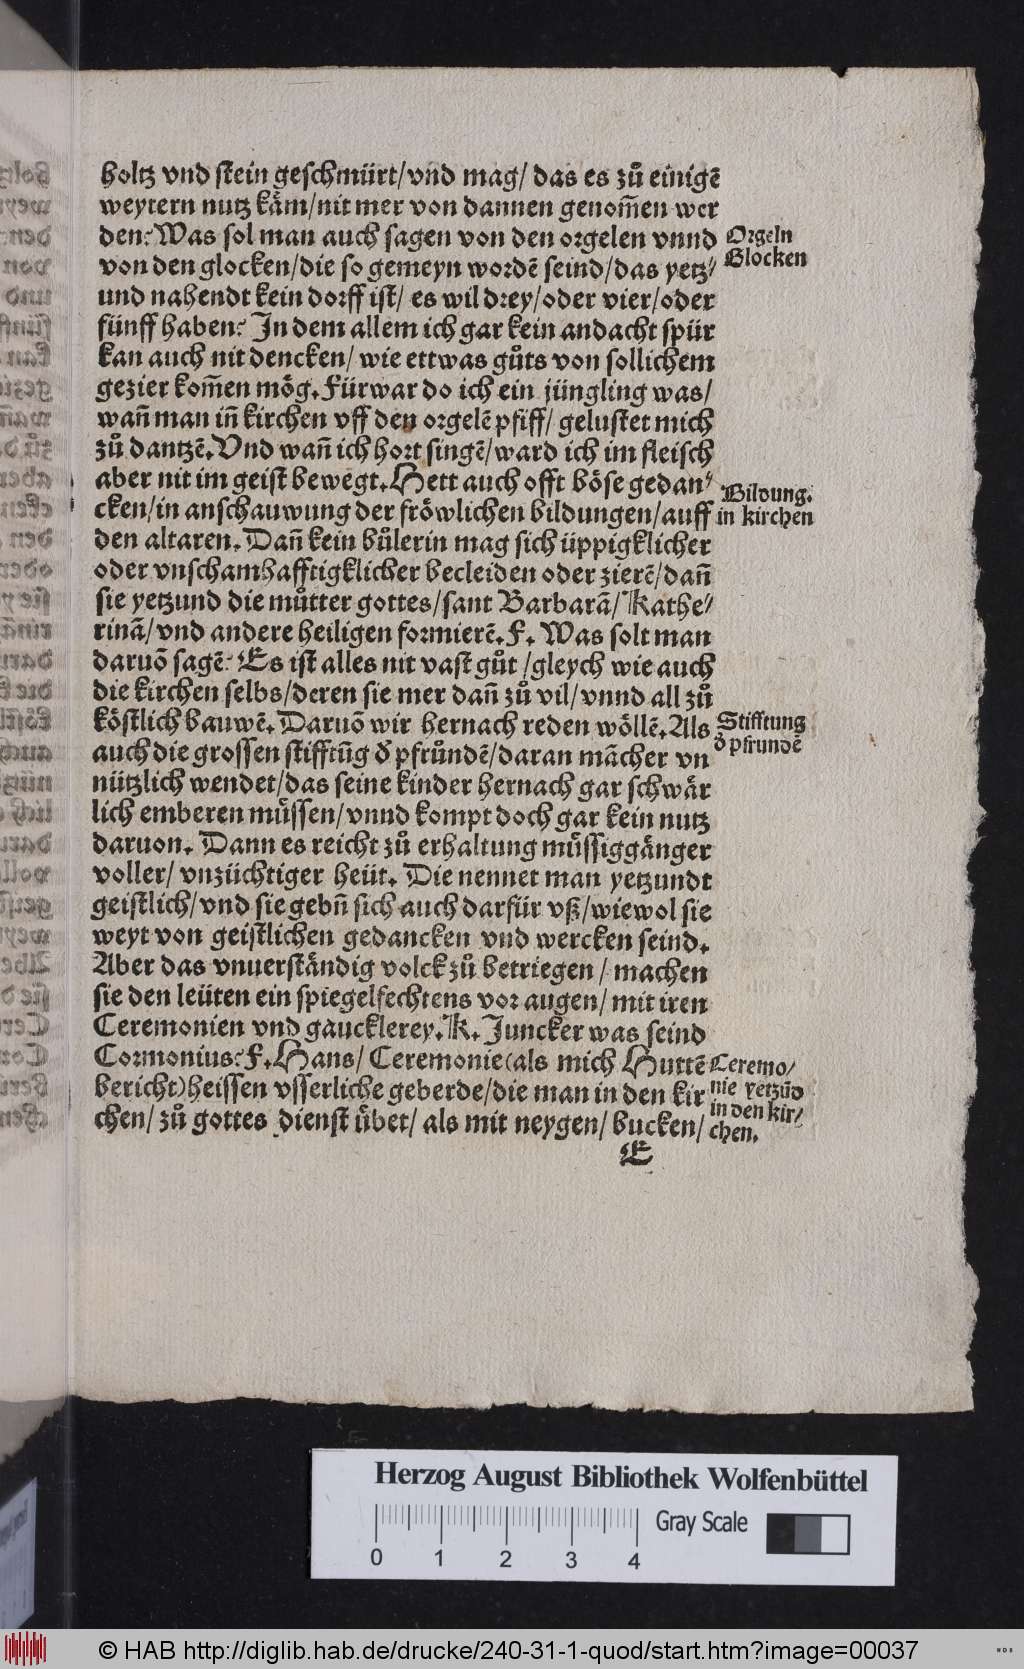 holtz vnd stein geschmürt/vnd mag/ das es zů einigẽ
weytern nutz kåm/nit mer von dannen genom̃en wer
den? Was sol man auch sagen von den orgelen vnnd
von den glocken/die so gemeyn wordẽ seind/das yetz⸗
und nahendt kein dorff ist/ es wil drey/oder vier/oder
fünff haben? In dem allem ich gar kein andacht spür
kan auch nit dencken/ wie ettwas gůts von sollichem
gezier kom̃en mög. Fürwar do ich ein jüngling was/
wañ man iñ kirchen vff den orgelẽ pfiff/ gelustet mich
zů dantzẽ. Vnd wañ ich hort singẽ/ward ich im fleisch
aber nit im geist bewegt. Hett auch offt böse gedan⸗
cken/in anschauwung der fröwlichen bildungen/auff
den altaren. Dañ kein bůlerin mag sich üppigklicher
oder vnschamhafftigklicher becleiden oder zierẽ/dañ
sie yetzund die můtter gottes/sant Barbarã/Kathe⸗
rinã/vnd andere heiligen formierẽ. F. Was solt man
daruõ sagẽ? Es ist alles nit vast gůt/gleych wie auch
die kirchen selbs/deren sie mer dañ zů vil/vnnd all zů
köstlich bauwẽ. Daruõ wir hernach reden wöllẽ. Als
auch die grossen stifftũg d̃ pfrůndẽ/daran mãcher vn
nützlich wendet/das seine kinder hernach gar schwår
lich emberen müssen/vnnd kompt doch gar kein nutz
daruon. Dann es reicht zů erhaltung müssiggånger
voller/ vnzüchtiger heüt. Die nennet man yetzundt
geistlich/vnd sie gebñ sich auch darfür vß/wiewol sie
weyt von geistlichen gedancken vnd wercken seind.
Aber das vnuerståndig volck zů betriegen/ machen
sie den leüten ein spiegelfechtens vor augen/ mit iren
Ceremonien vnd gaucklerey. K. Juncker was seind
Cormonius? F. Hans/ Ceremonie(als mich Huttẽ
bericht)heissen vsserliche geberde/die man in den kir
chen/ zů gottes dienst ůbet/ als mit neygen/ bucken/
E
Orgeln
Glocken
Bildung.
in kirchen
Stifftung
d̃ pfrundẽ
Ceremo⸗
nie yetzũd
in den kir⸗
chen.
Herzog August Bibliothek Wolfenbüttel
Gray Scale
0 1 2 3 4
© HAB http://diglib.hab.de/drucke/240-31-1-quod/start.htm?image=00037